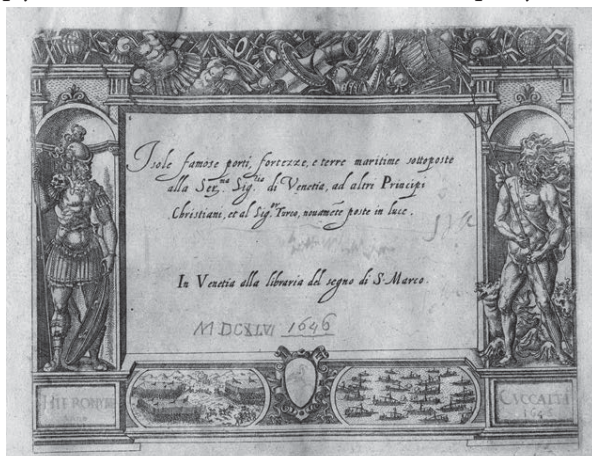 Isole famose porti, fortezze, e terre maritime sottoposte
alla Ser.ma Sig.ria di Venetia, ad altri Principi
Christiani, et al Sig.or Turco, novamẽte poste in luce.
In Venetia alla libraria del segno di S. Marco.
MDCXLVI 1646
1646